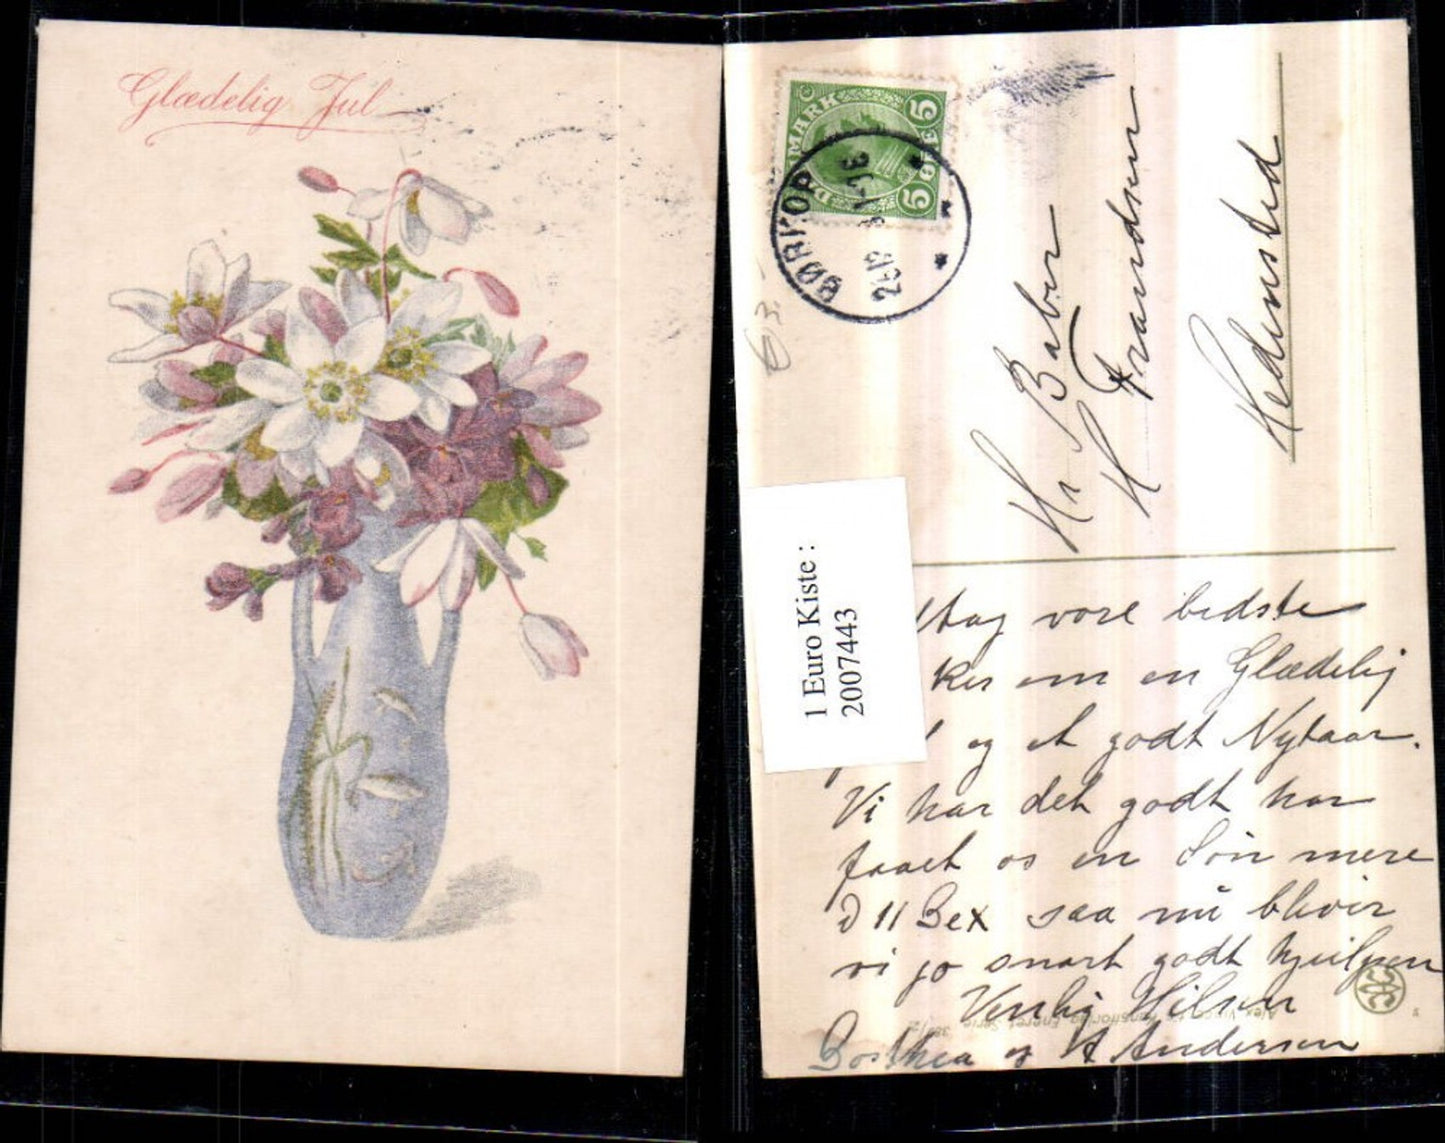 Glædelig Jul
DANMARK
5 ØRE 5
BØRKOP
Hr Baber
H Frandsen
Hedensted
€3.-
1 Euro Kiste :
2007443
vore bedste
om en Glædelig
og et godt Nytaar.
Vi har det godt har
faaet os en Søn mere
D 11 Sex saa nu bliver
vi jo snart godt hjulpen
Venlig Hilsen
og A Andersen
Alex Vincents Kunstforlag Eneret Serie